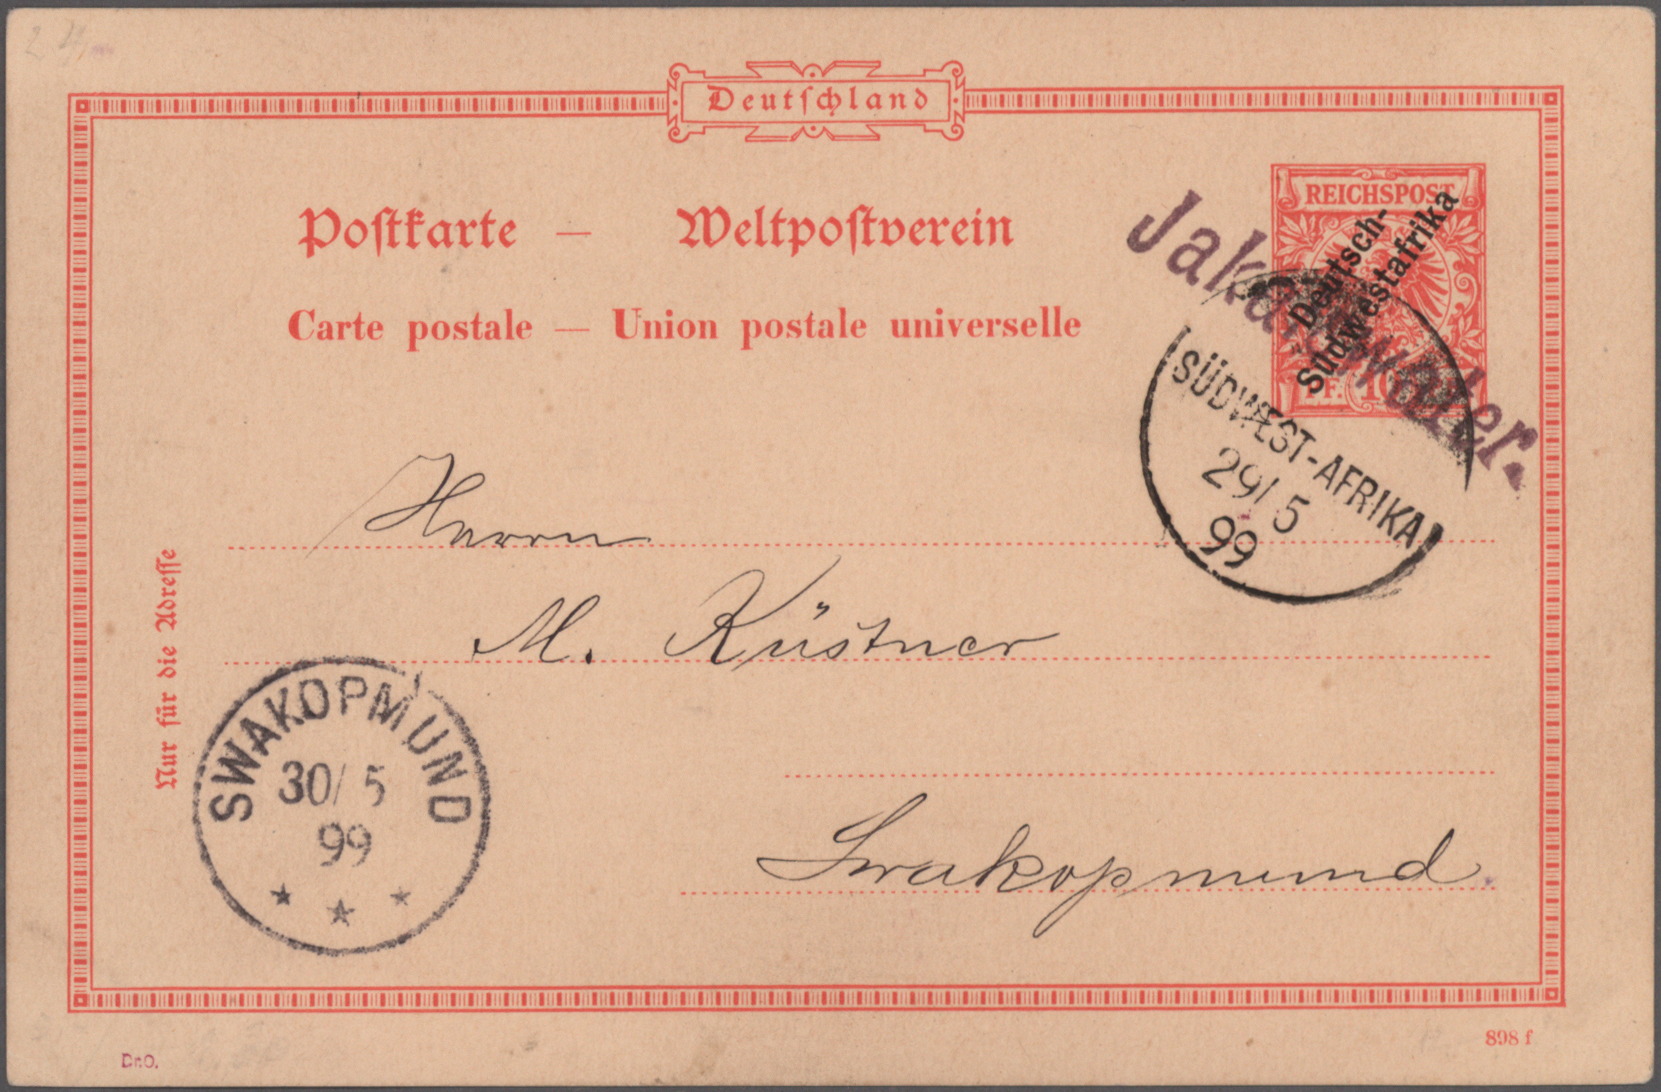 Deutschland
Postkarte — Weltpostverein
Carte postale — Union postale universelle
REICHSPOST
Deutsch-
Südwestafrika
10
Jakalswater.
SÜDWEST-AFRIKA
29/5
99
Herrn
M. Küstner
Swakopmund
Nur für die Adresse
SWAKOPMUND
30/5
99
* * *
898 f
Dr.O.